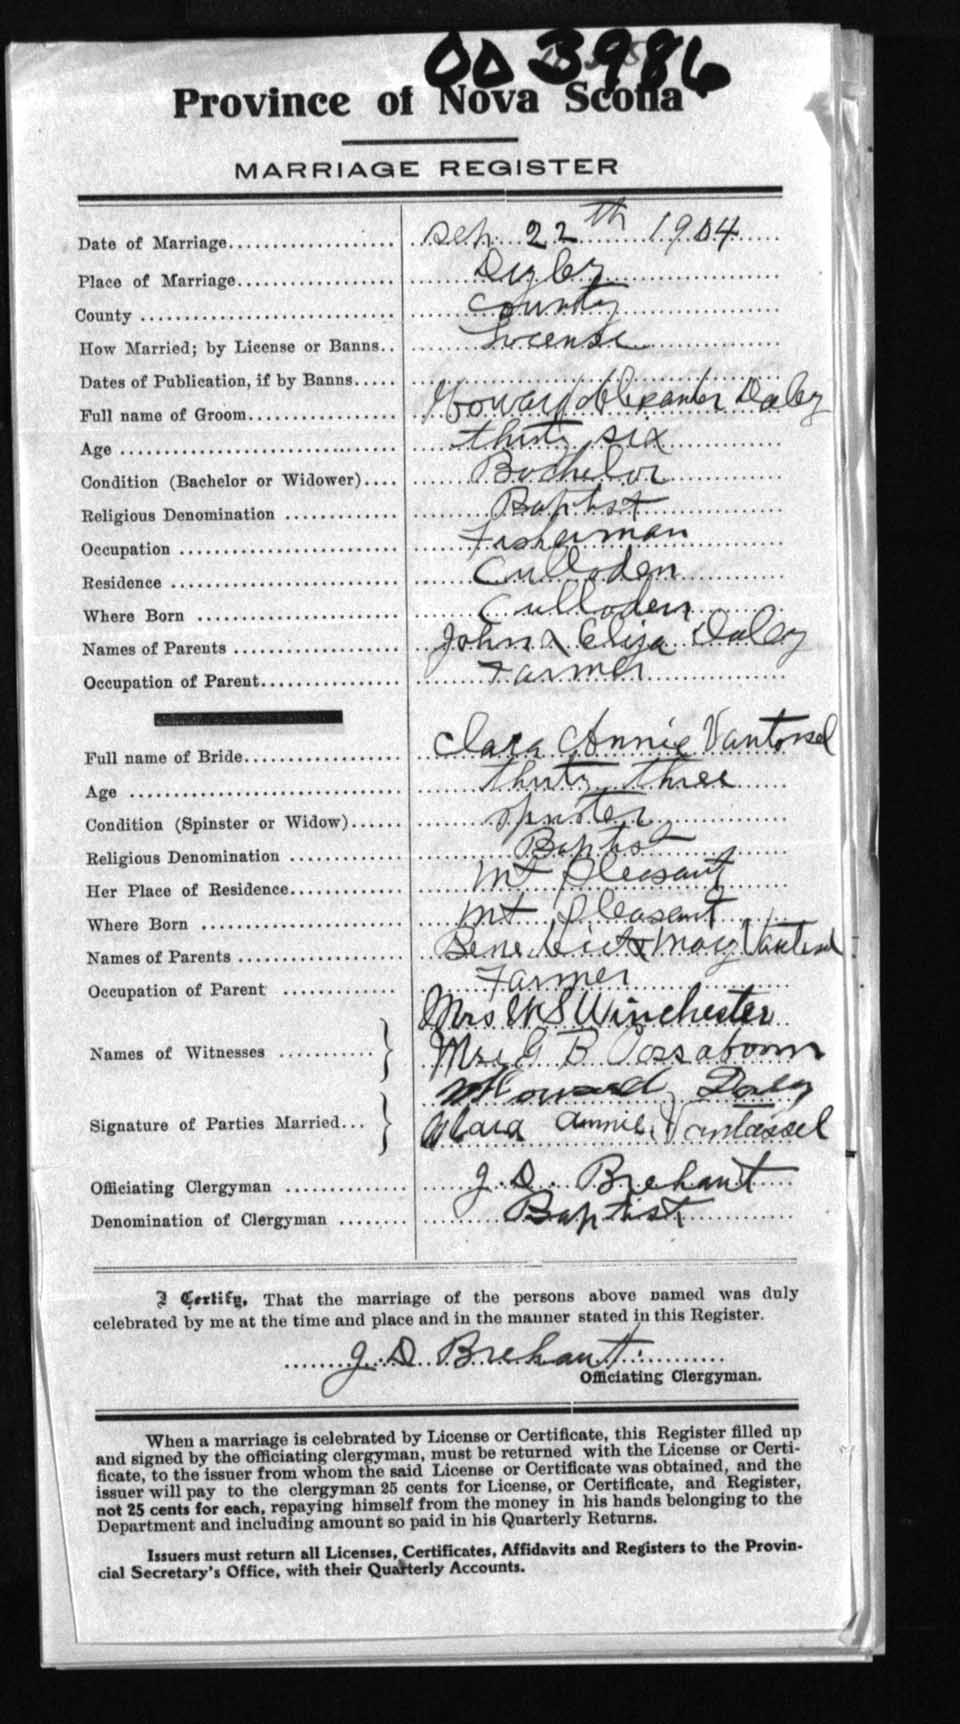 003986
Province of Nova Scotia
MARRIAGE REGISTER
Date of Marriage.................... Sep. 22th 1904
Place of Marriage.................. Digby
County ............................. County
How Married; by License or Banns.. License
Dates of Publication, if by Banns.....
Full name of Groom................. Howard Alexander Daley
Age ................................ thirty six
Condition (Bachelor or Widower).... Bachelor
Religious Denomination ............. Baptist
Occupation ......................... Fisherman
Residence .......................... Culloden
Where Born ........................ Culloden
Names of Parents ................... John & Eliza Daley
Occupation of Parent................ Farmer
Full name of Bride.................. Clara Annie Vantassel
Age ................................ thirty three
Condition (Spinster or Widow)...... Spinster
Religious Denomination ............. Baptist
Her Place of Residence.............. Mt Pleasant
Where Born ........................ Mt Pleasant
Names of Parents ................... Benedict & Mary Vantassel
Occupation of Parent ............... Farmer
Mrs W S Winchester
Names of Witnesses ........... } Mrs G B Possaboom
Howard Daley
Signature of Parties Married... } Clara Annie Vantassel
Officiating Clergyman .............. J. D. Brehaut
Denomination of Clergyman ........ Baptist
I Certify, That the marriage of the persons above named was duly
celebrated by me at the time and place and in the manner stated in this Register.
J. D. Brehaut
Officiating Clergyman.
When a marriage is celebrated by License or Certificate, this Register filled up
and signed by the officiating clergyman, must be returned with the License or Certi-
ficate, to the issuer from whom the said License or Certificate was obtained, and the
issuer will pay to the clergyman 25 cents for License, or Certificate, and Register,
not 25 cents for each, repaying himself from the money in his hands belonging to the
Department and including amount so paid in his Quarterly Returns.
Issuers must return all Licenses, Certificates, Affidavits and Registers to the Provin-
cial Secretary's Office, with their Quarterly Accounts.